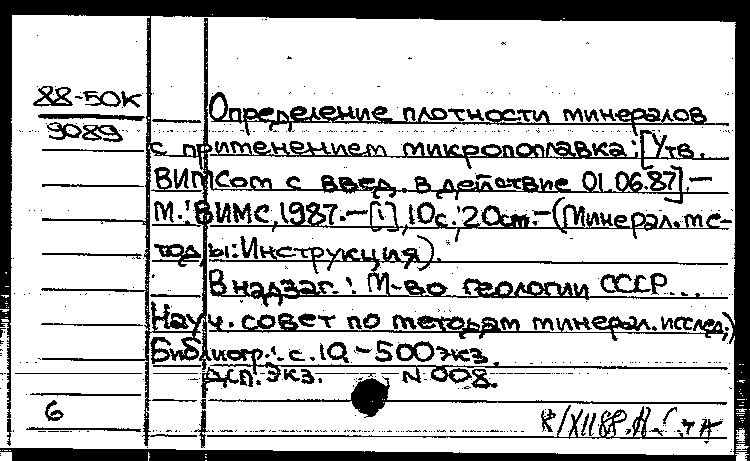 88-50К
9089
Определение плотности минералов
с применением микропоплавка: [Утв.
ВИМСом с введ. в действие 01.06.87].—
М.: ВИМС, 1987.—[1], 10 с.; 20 см.—(Минерал. ме-
тоды: Инструкция).
В надзаг.: М-во геологии СССР...
Науч. совет по методам минерал. исслед.;
Библиогр.: с. 10.—500 экз.
ДСП. Экз. N 008.
6